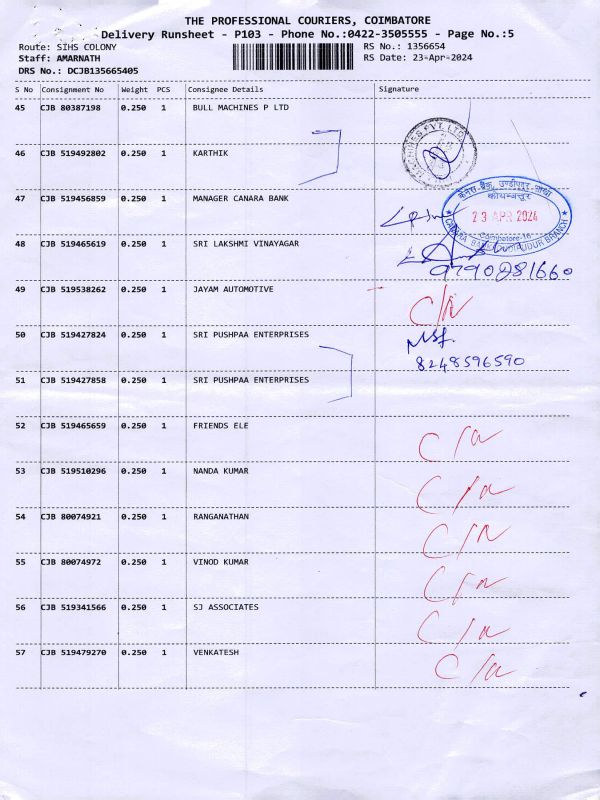 THE PROFESSIONAL COURIERS, COIMBATORE
Delivery Runsheet - P103 - Phone No.:0422-3505555 - Page No.:5
Route: SIHS COLONY
RS No.: 1356654
Staff: AMARNATH
RS Date: 23-Apr-2024
DRS No.: DCJB135665405
S No Consignment No Weight PCS Consignee Details Signature
45 CJB 80387198 0.250 1 BULL MACHINES P LTD
MACHINES PVT. LTD
46 CJB 519492802 0.250 1 KARTHIK
47 CJB 519456859 0.250 1 MANAGER CANARA BANK
कोयम्बत्तूर
23 APR 2024
Coimbatore-16
48 CJB 519465619 0.250 1 SRI LAKSHMI VINAYAGAR
49 CJB 519538262 1 0.250 JAYAM AUTOMOTIVE C/N
50 CJB 519427824 0.250 1 SRI PUSHPAA ENTERPRISES
8248596590
51 CJB 519427858 0.250 1 SRI PUSHPAA ENTERPRISES
52 CJB 519465659 0.250 1 FRIENDS ELE C/N
53 CJB 519510296 0.250 1 NANDA KUMAR C/N
54 CJB 80074921 0.250 1 RANGANATHAN C/N
55 CJB 80074972 0.250 1 VINOD KUMAR C/N
56 CJB 519341566 0.250 1 SJ ASSOCIATES C/N
57 CJB 519479270 0.250 1 VENKATESH C/N